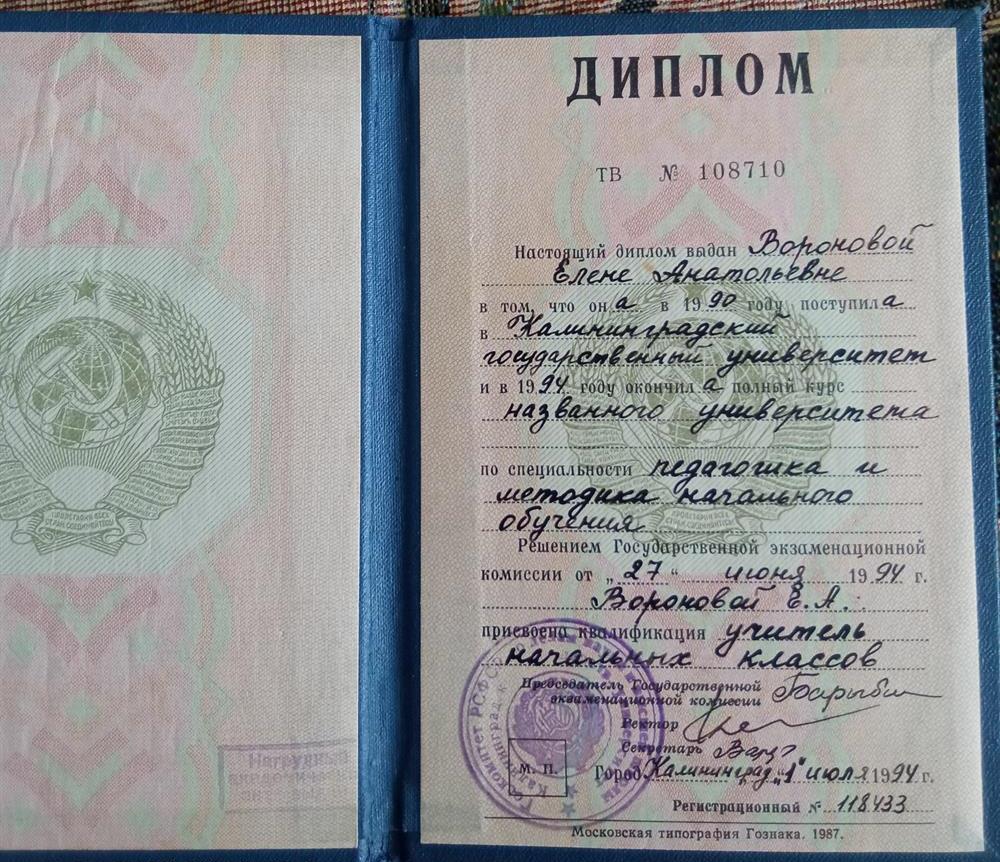 ДИПЛОМ
ТВ № 108710
Настоящий диплом выдан Вороновой
Елене Анатольевне
в том, что она в 1990 году поступила
в Калининградский
государственный университет
и в 1994 году окончила полный курс
названного университета
по специальности педагогика и
методика начального
обучения
Решением Государственной экзаменационной
комиссии от „27“ июня 1994 г.
Вороновой Е.А.
присвоена квалификация учитель
начальных классов
Председатель Государственной
экзаменационной комиссии
Ректор
Секретарь
М. П.
Город Калининград „1" июля 1994 г.
Регистрационный № 118433
Московская типография Гознака. 1987.
Нагрудный